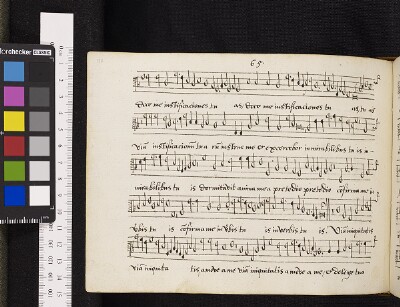 65
Doce me iustificationes tu as Doce me iustificationes tu as, tu as
Viã iustificationũ tuarũ instrue me & exercebor in mirabilibus tu is
mirabilibus tu is Dormitauit anima mea pre tedio pre tedio cõfirma me in
Vbis tu is cõfirma me in Vbis tu is in verbis tu is. Viã iniquitatis
Viã iniquita tis amoue a me Viã iniquitatis amoue a me, & de lege tua